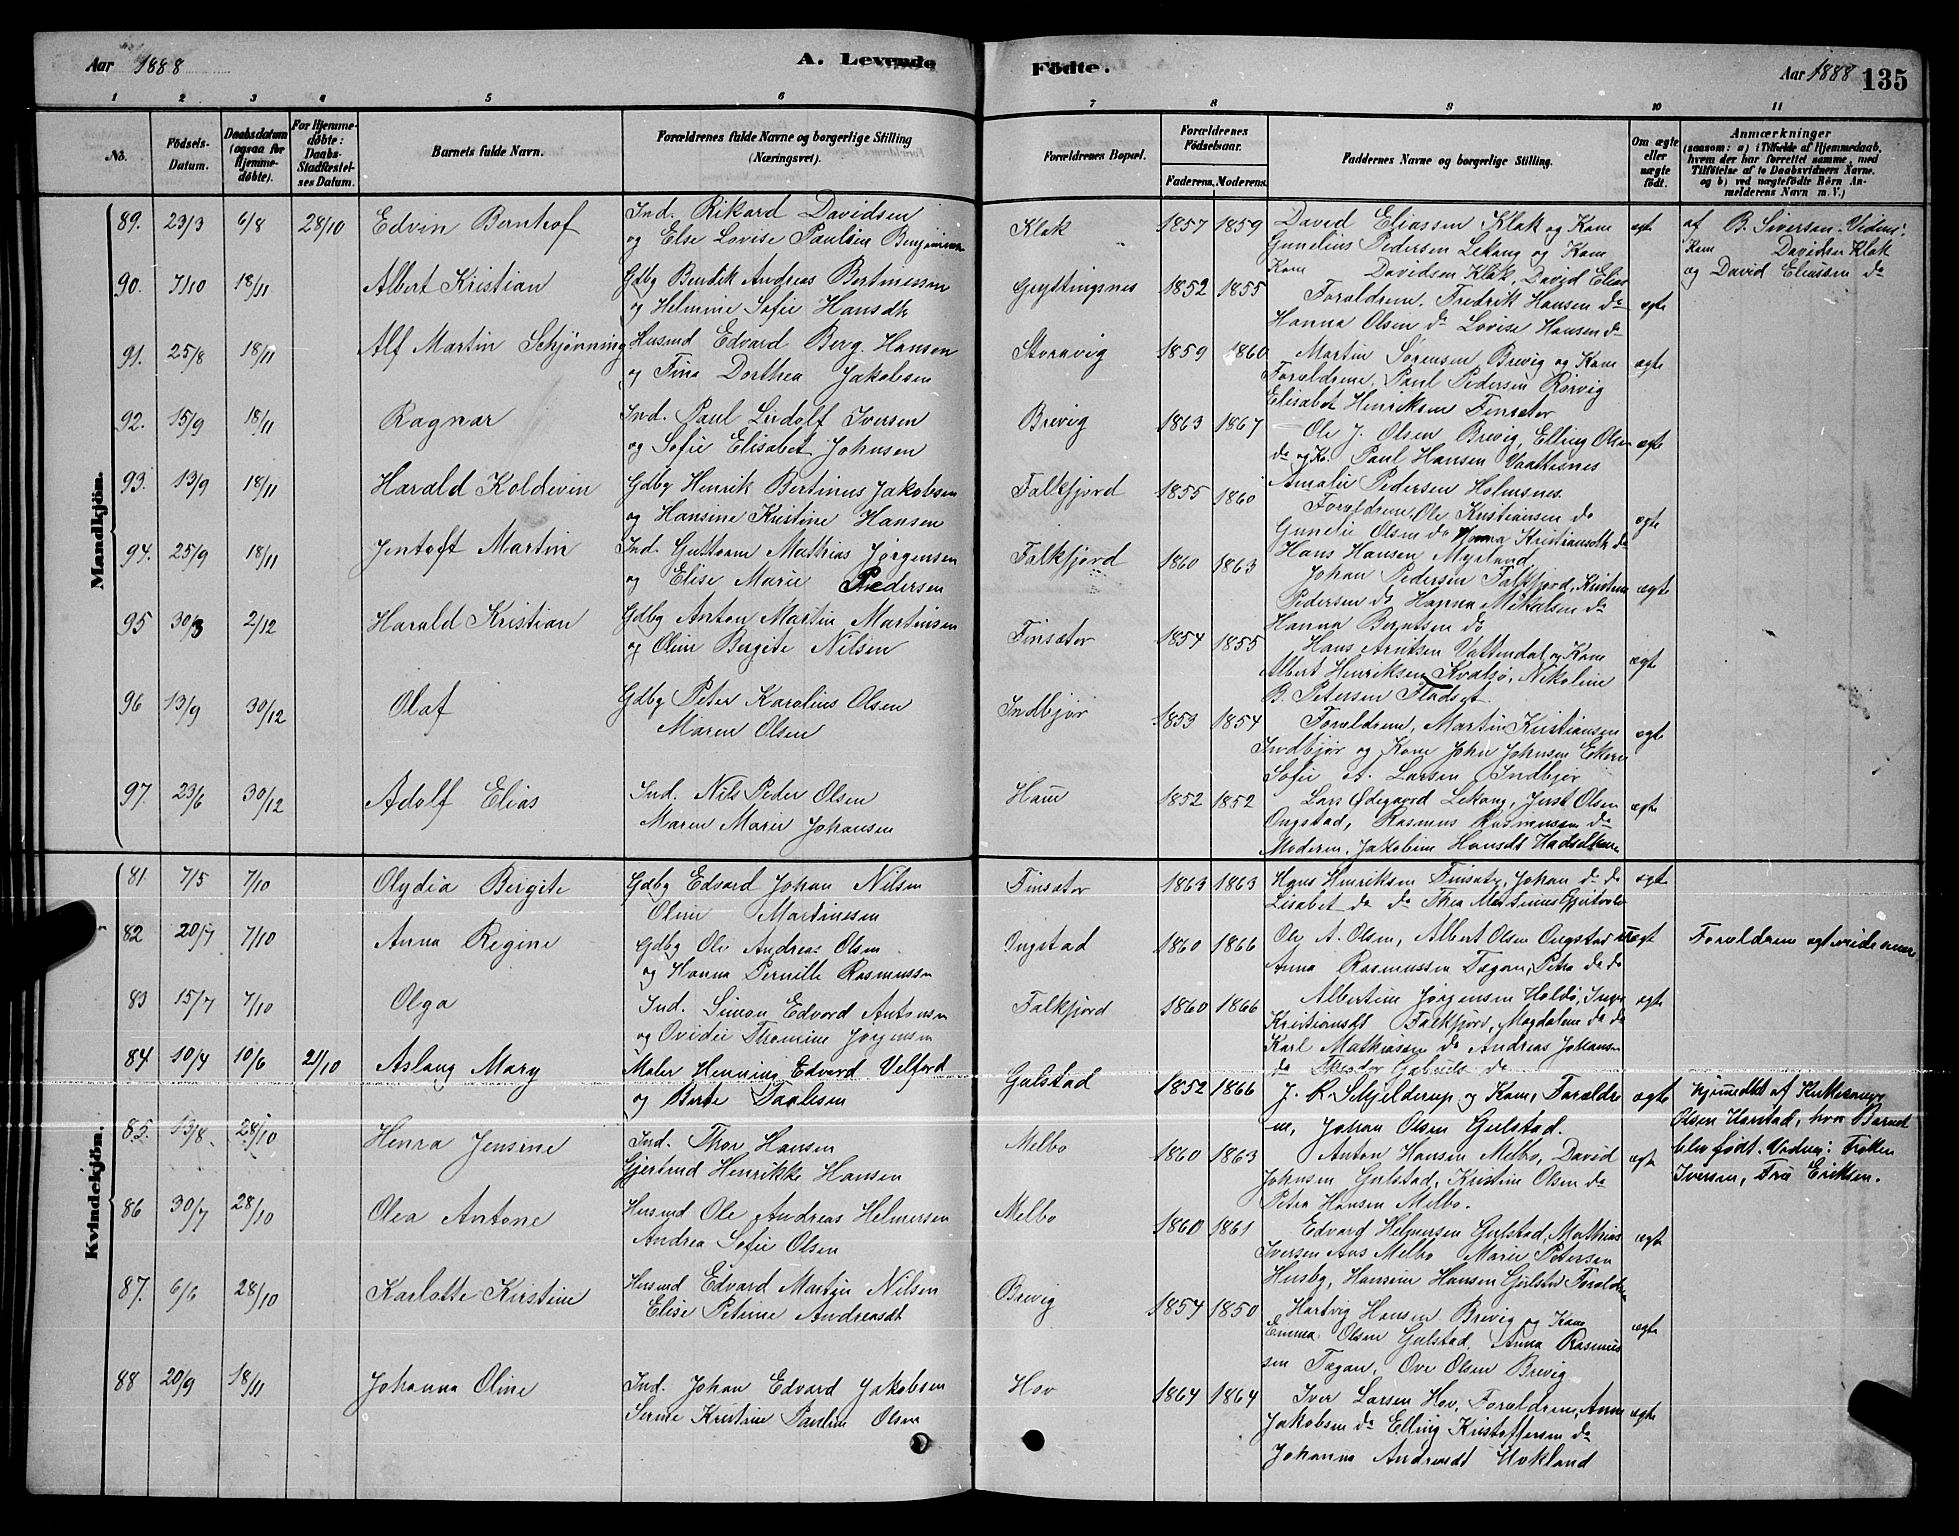 Aar 1888
A. Levende
Födte.
Aar 1888 135
1 2 3 4 5 6 7 8 9 10 11
No.
Födsels-Datum.
Daabsdatum (ogsaa for Hjemme-döbte).
For Hjemme-döbte: Daabs-Stadfæstelses Datum.
Barnets fulde Navn.
Forældrenes fulde Navne og borgerlige Stilling (Næringsvei).
Forældrenes Bopæl.
Forældrenes Födselsaar.
Faderens. Moderens.
Faddernes Navne og borgerlige Stilling.
Om ægte eller uægte födt.
Anmærkninger
(saasom: a) i Tilfælde af Hjemmedaab, hvem der har forrettet samme, med Tilföielse af to Daabsvidners Navne, og b) ved uægtefödte Börn Anmelderens Navn m. V.)
Mandkjön.
89. 23/3 6/8 28/10 Edvin Banhof
Ind. Rikard Davidsen
og Else Lovise Paulsen
Klak 1857 1859
David Eliassen Klak og Kone
Gunelius Pedersen Lekang og Kone
Kone Davidsen Klak, David Elias
ægt
af B. Siversen. Vidner.
Kone Davidsen Klak
og David Eliassen do
90. 7/10 18/11 Albert Kristian
Gdbg Bendik Andreas Bertinessen
og Helmine Sofie Hansdtr
Gryttingsnes 1852 1855
Forældrene, Fredrik Hansen do
Hanna Olsen do Lovise Hansen do
ægte
91. 25/8 18/11 Alf Martin Schjønning
Husmd Edvard Berg Hansen
og Fina Dorthea Jakobsen
Storavig 1859 1860
Martin Sørensen Brevig og Kone
Forældrene, Paul Pedersen Rørvig
Elisabet Henriksen Finsæter
ægte
92. 15/9 18/11 Ragnar
Ind. Paul Lerdolf Iversen
og Sofie Elisabet Johnsen
Brevig 1863 1867
Ole J. Olsen Brevig, Elling Olsen
do og K. Paul Hansen Vaattesnes
Amalie Pedersen Holmsnes
ægte
93. 13/9 18/11 Harald Koldevin
Gdbg Henrik Bertinus Jakobsen
og Hansine Kristine Hansen
Falkfjord 1855 1860
Forældrene, Ole Kristiansen do
Gunelie Olsen do Kristiansdtr do
Hans Hansen Myrland
ægte
94. 25/9 18/11 Jentoft Martin
Ind. Guttorm Mathias Jørgensen
og Elise Marie Pedersen
Falkfjord 1860 1863
Johan Pedersen Falkfjord, Kristine
Pedersen do Hanna Mikalsen do
Hanna Berntsen do
ægte
95 30/3 2/12 Harald Kristian
Gdbg Anton Martin Martinsen
og Oline Bergite Nilsen
Finsæter 1854 1855
Hans Arntsen Vattendal og Kone
Albert Henriksen Kvalsø, Nikoline
B. Petersen Fladset
ægte
96 13/9 30/12 Olaf
Gdbg Peter Karolius Olsen
Maren Olsen
Indbjør 1853 1854
Forældrene, Martin Kristiansen
Indbjør og Kone John Johnsen
Sofie A. Larsen Indbjør
ægte
97. 23/6 30/12 Adolf Elias
Ind. Nils Peder Olsen
Maren Marie Johansen
Haun 1852 1852
Lars Ødegaard Lekang, Olsen
Ongstad, Rasmus Rasmussen do
Moderen, Jakobine Hansdt Hadselhavn
ægte
Kvindekjön.
81 7/5 7/10 Olydia Bergite
Gdbg Edvard Johan Nilsen
Oline Martinesen
Finsæter 1863 1863
Hans Henriksen Finsæter, Johan do do
Lisabet do do Thea Martinus
ægt
82 20/7 7/10 Anna Regine
Gdbg Ole Andreas Olsen
og Hanna Pernille Rasmussen
Ongstad 1860 1866
Ole A. Olsen, Albert Olsen Ongstad
Anna Rasmussen Tægan, Petra do do
ægt
Forældrene
83 15/7 7/10 Olga
Ind. Simon Edvard Antonsen
og Ovidie Thomine Jørgensen
Falkfjord 1860 1866
Albertine Jørgensen Holdø, Inger
Kristiansdt Falkfjord, Magdalene do do
Karl Mathiassen do Andreas Johansen
do Theodor Gabriels do
ægt
84 10/4 10/6 21/10 Aslaug Mary
Maler Henning Edvard Velford
og Berte Paulsen
Gulstad 1852 1866
J. R. Schjelderup og Kone, Forældre
ne, Johan Olsen Gulstad.
ægte
hjemedbt af Kirkesanger
Olsen Harstad, hvor Barnet
blev født. Vidner: Frøken
Iversen, Fru Eriksen.
85. 13/8. 28/10 Henra Jensine
Ind. Thor Hansen
Gjertrud Henrikke Hansen
Melbo 1860 1863
Anton Hansen Melbo, David
Johnsen Gulstad, Kristine Olsen do
Petra Hansen Melbo.
ægt
86 30/7 28/10 Olea Antone
Husmd Ole Andreas Helmersen
Andrea Sofie Olsen
Melbo 1860 1861
Edvard Helmersen Gulstad, Mathias
Iversen Aus Melbo Marie Petersen
Husby, Hansine Hansen Gulstad Foreldrene
ægt
87. 6/6 28/10 Karlotte Kirstine
Husmd Edvard Martin Nilsen
Elise Petrine Andreasdt
Brevig 1854 1850
Hartvig Hansen Brevig og Kone
Emma Olsen Gulstad, Anna Rasmus
sen Tægan, Ove Olsen Brevig
ægte
88 20/9 18/11 Johanna Oline
Ind. Johan Edvard Jakobsen
Serine Kristine Pauline Olsen
Hov 1864 1864
Iver Larsen Hov, Forældrene, Anne
Jakobsen do Elling Kristoffersen do
Johanna Andreasdt Hokland
ægte